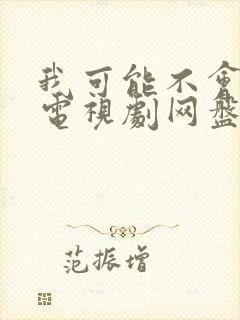 我可能不會
電視劇网盤
范振增